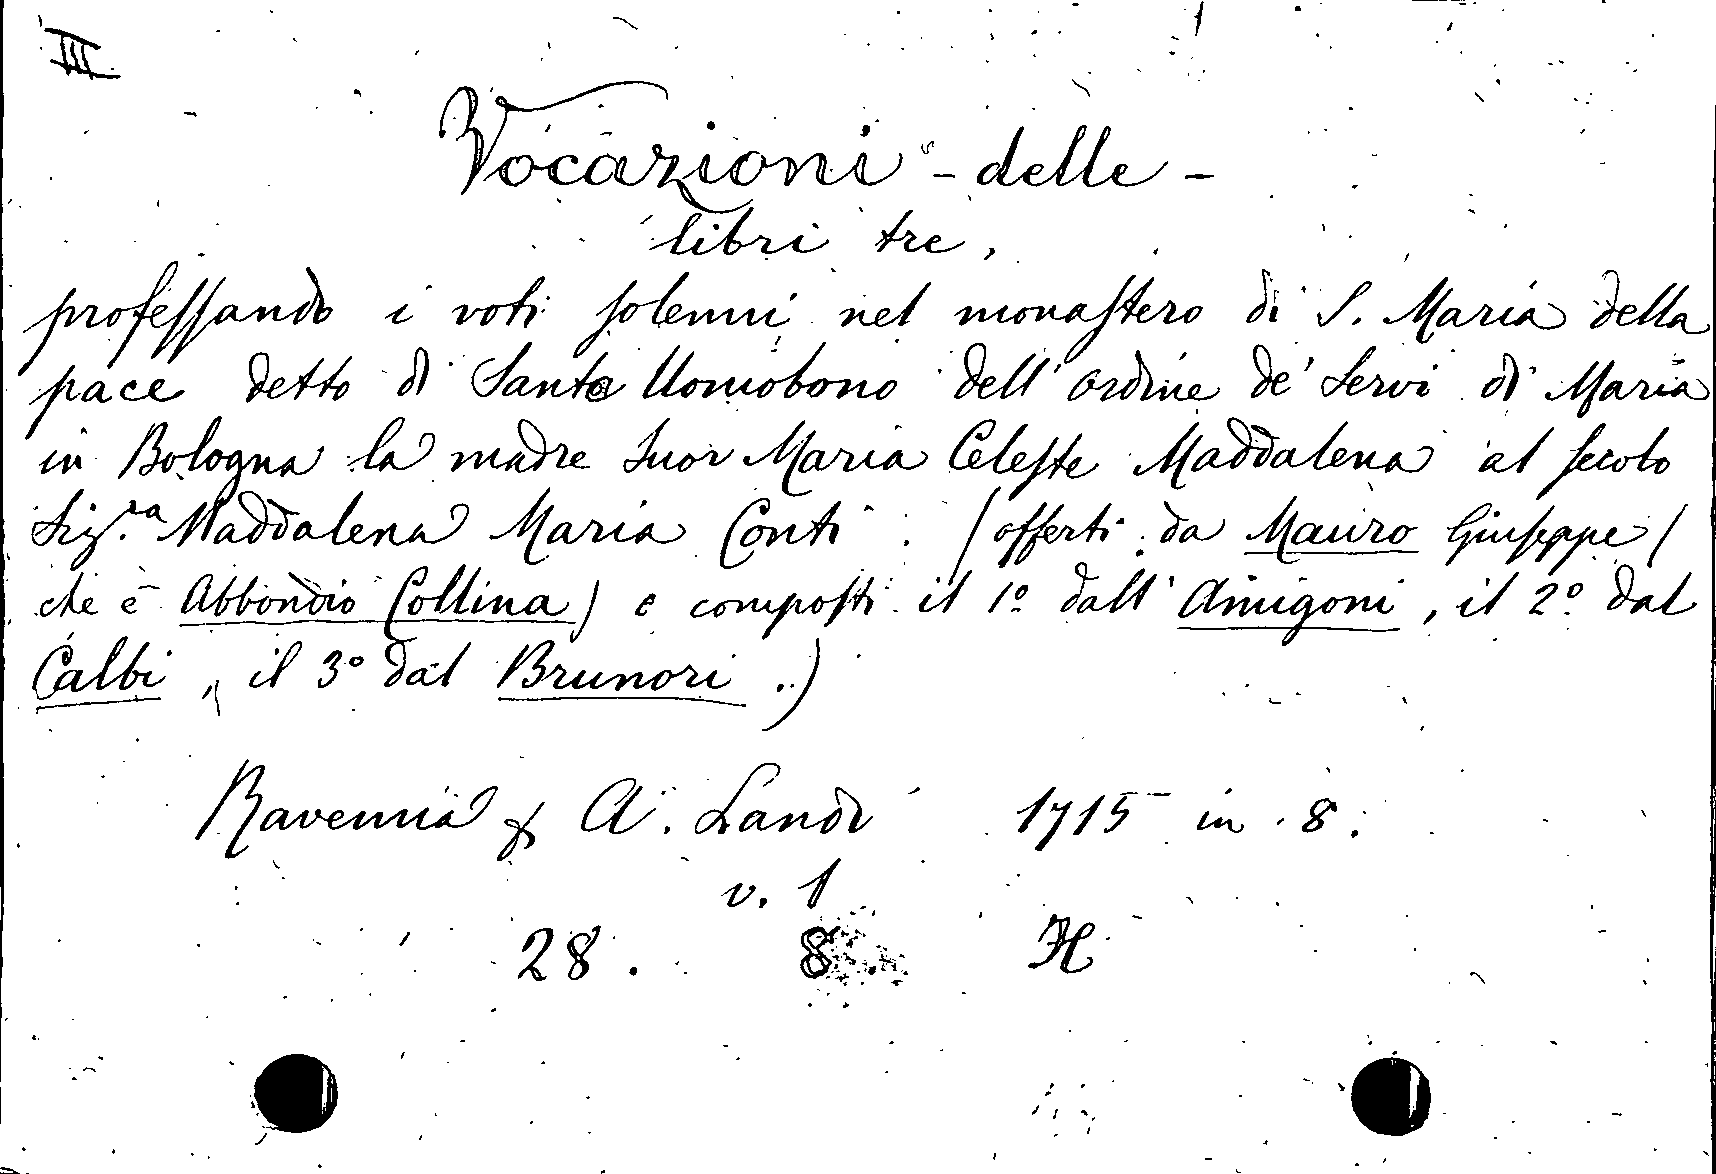 III.
Vocazioni - delle -
libri tre,
professando i voti solenni nel monastero di S. Maria della
pace detto di Santo Uomobono dell' ordine de' Servi di Maria
in Bologna la madre Suor Maria Celeste Maddalena al secolo
Sig.ra Maddalena Maria Conti. (offerti da Mauro Giuseppe (
che è Abbondio Collina) e composti il 1º dall' Amigoni, il 2º dal
Calbi, il 3º dal Brunori.)
Ravenna A. Landi 1715 in 8.
v. 1
28. 8 H